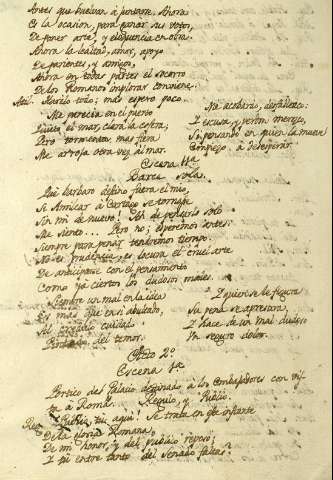 Antes que vuelvan à juntarse. Ahora
Es la ocasion, para ganar sus votos,
De poner arte, y eloquencia en obra.
Ahora la lealtad, amor, apoyo
De parientes, y amigos,
Ahora en todas partes el socorro
De los Romanos implorar conviene.
Atil. Harélo todo; mas espero poco.
Me parecia en el puerto
Quieto el mar, clara la costa,
Pero tormenta mas fiera
Me arroja otra vez al mar.
Me acobardo, desfallezco:
I escusa, y perdon merezco,
Si pensando en quien la mueve
Comienzo à desesperar.
Escena 11ª
Barce sola.
Qué barbaro destino fuera el mio,
Si Amilcar à Cartago se tornase
Sin mi de nuevo! Ah de pensarlo solo
Me siento... Pero no; esperemos antes:
Siempre para penar tendremos tiempo.
No es prudencia, es locura el cruel arte
De anticiparse con el pensamiento
Como ya ciertos los dudosos males.
Siempre un mal en la idea
Es mas que en sí abultado,
del temor.
I quien se le figura
Su pena se apresura,
I hace de un mal dudoso
Un seguro dolor.
Acto 2º
Escena 1ª
Portico del Palacio destinado à los Embajadores con vis-
ta à Roma. Regulo, y Publio.
Reg. Publio, tu aqui! Se trata en este instante
De la gloria Romana,
De mi honor, y del publico reposo;
I tu entre tanto del Senado faltas?